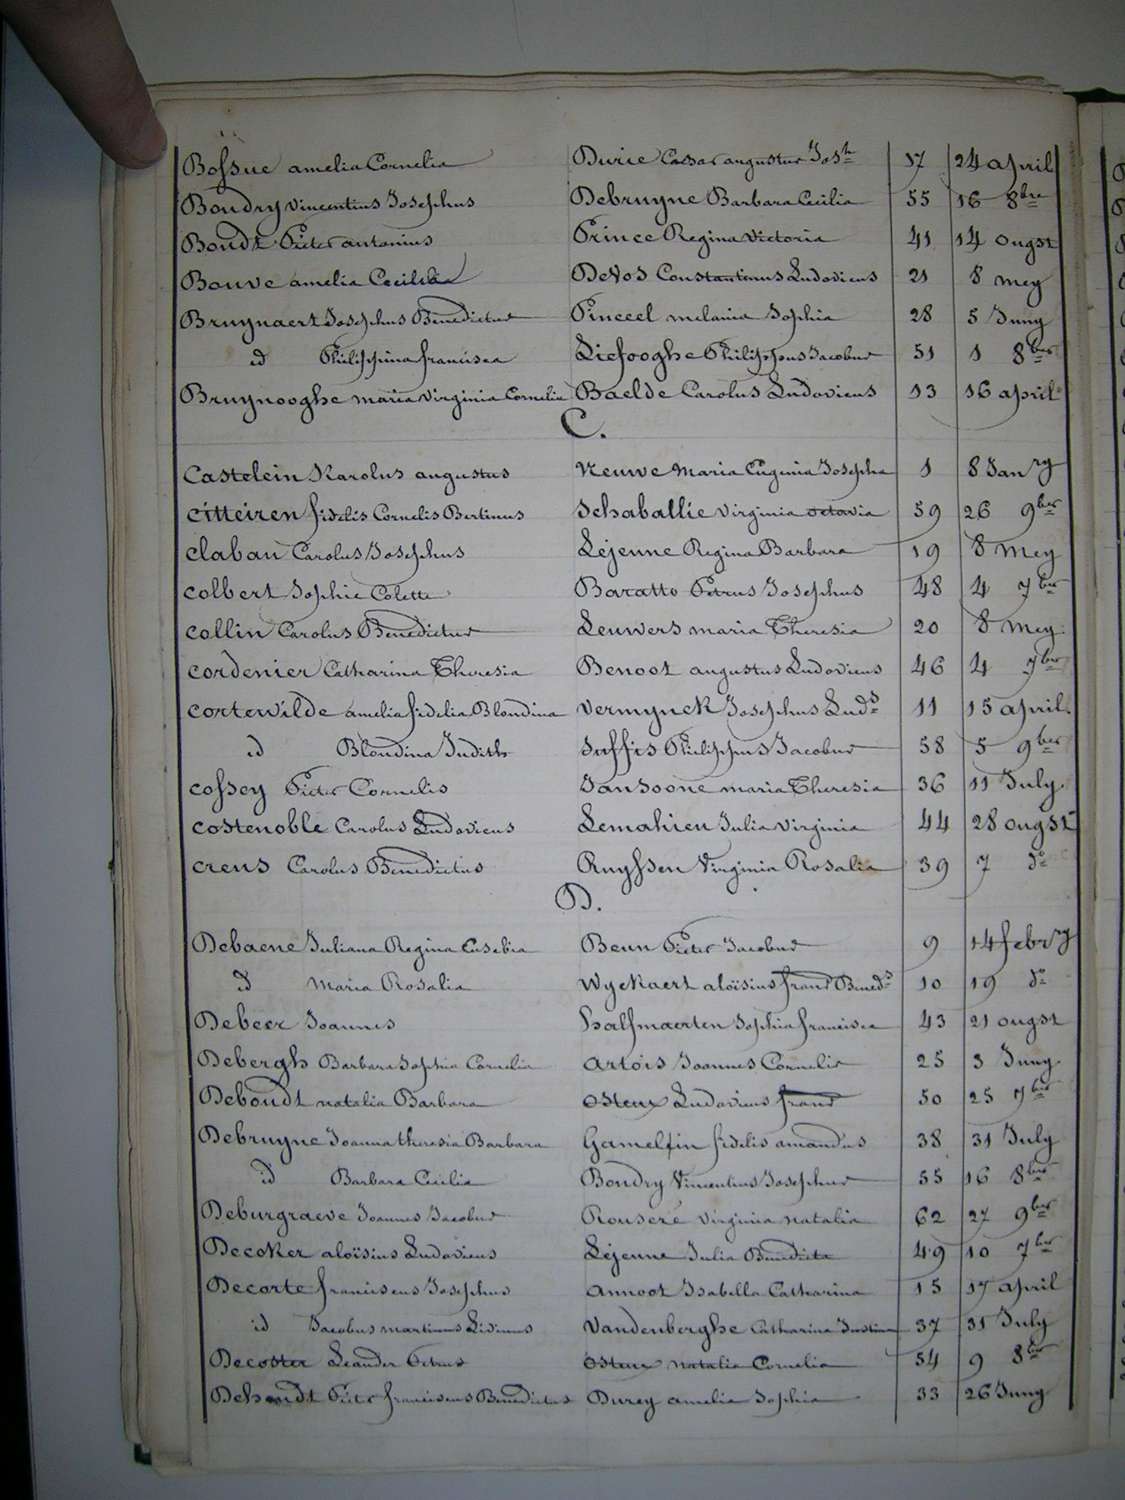 Bossue amelia Cornelia Durie Caesar augustus Josh 17 24 april
Boudry vincentius Josephus Debruyne Barbara Cecilia 55 16 8bre
Boudt Pieter antonius Prince Regina Victoria 41 14 ougst
Bouve amelia Cecilia DeVos Constantinus Ludovicus 21 8 mey
Bruynaert Josephus Benedictus Pinceel melania Sophia 28 5 Juny
id Philippina francisca Liefooghe Philippus Jacobus 51 1 8ber
Bruynooghe maria virginia Cornelia Baelde Carolus Ludovicus 13 16 april
C.
Castelein Karolus augustus Neuwe Maria Eugenia Josepha 1 8 Janry
citteiren fidelis Cornelis Bertinus Schaballie Virginia octavia 59 26 9ber
clabau Carolus Josephus Lejeune Regina Barbara 19 8 mey
colbert Sophie Colette Baratto Petrus Josephus 48 4 7ber
collin Carolus Benedictus Leuwers maria Theresia 20 8 mey
cordenier Catharina Theresia Benoot augustus Ludovicus 46 4 7ber
cortewilde amelia fidelia Blondina Vermynck Josephus Luds 11 15 april
id Blondina Judith Suffis Philippus Jacobus 58 5 9ber
cossey Pieter Cornelis Jansoone maria Theresia 36 11 July
costenoble Carolus Ludovicus Lemahieu Julia Virginia 44 28 ougst
creus Carolus Benedictus Ruyssen Virginia Rosalia 39 7 do
D.
Debaene Juliana Regina Eusebia Beun Pieter Jacobus 9 14 febry
id Maria Rosalia Wyckaert aloïsius frans Beneds 10 19 do
Debeer Joannes halfmaerten Sophia francisca 43 21 ougst
Debergh Barbara Sophia Cornelia Artois Joannes Cornelis 25 3 Juny
Deboudt natalia Barbara osteux Ludovicus frans 50 25 7ber
Debruyne Joanna theresia Barbara Gamelfin fidelis amandus 38 31 July
id Barbara Cecilia Boudry Vincentius Josephus 55 16 8bre
Deburgraeve Joannes Jacobus Rouseré virginia natalia 62 27 9ber
Decoker aloïsius Ludovicus Lejeune Julia Benedicta 49 10 7ber
Decorte franciscus Josephus annoot Isabella Catharina 15 17 april
id Jacobus martinus Livinus Vandenberghe Catharina Justina 37 31 July
Decoster Leander Petrus osteux natalia Cornelia 54 9 8ber
Dehandt Pieter franciscus Benedictus Durey amelia Sophia 33 26 Juny